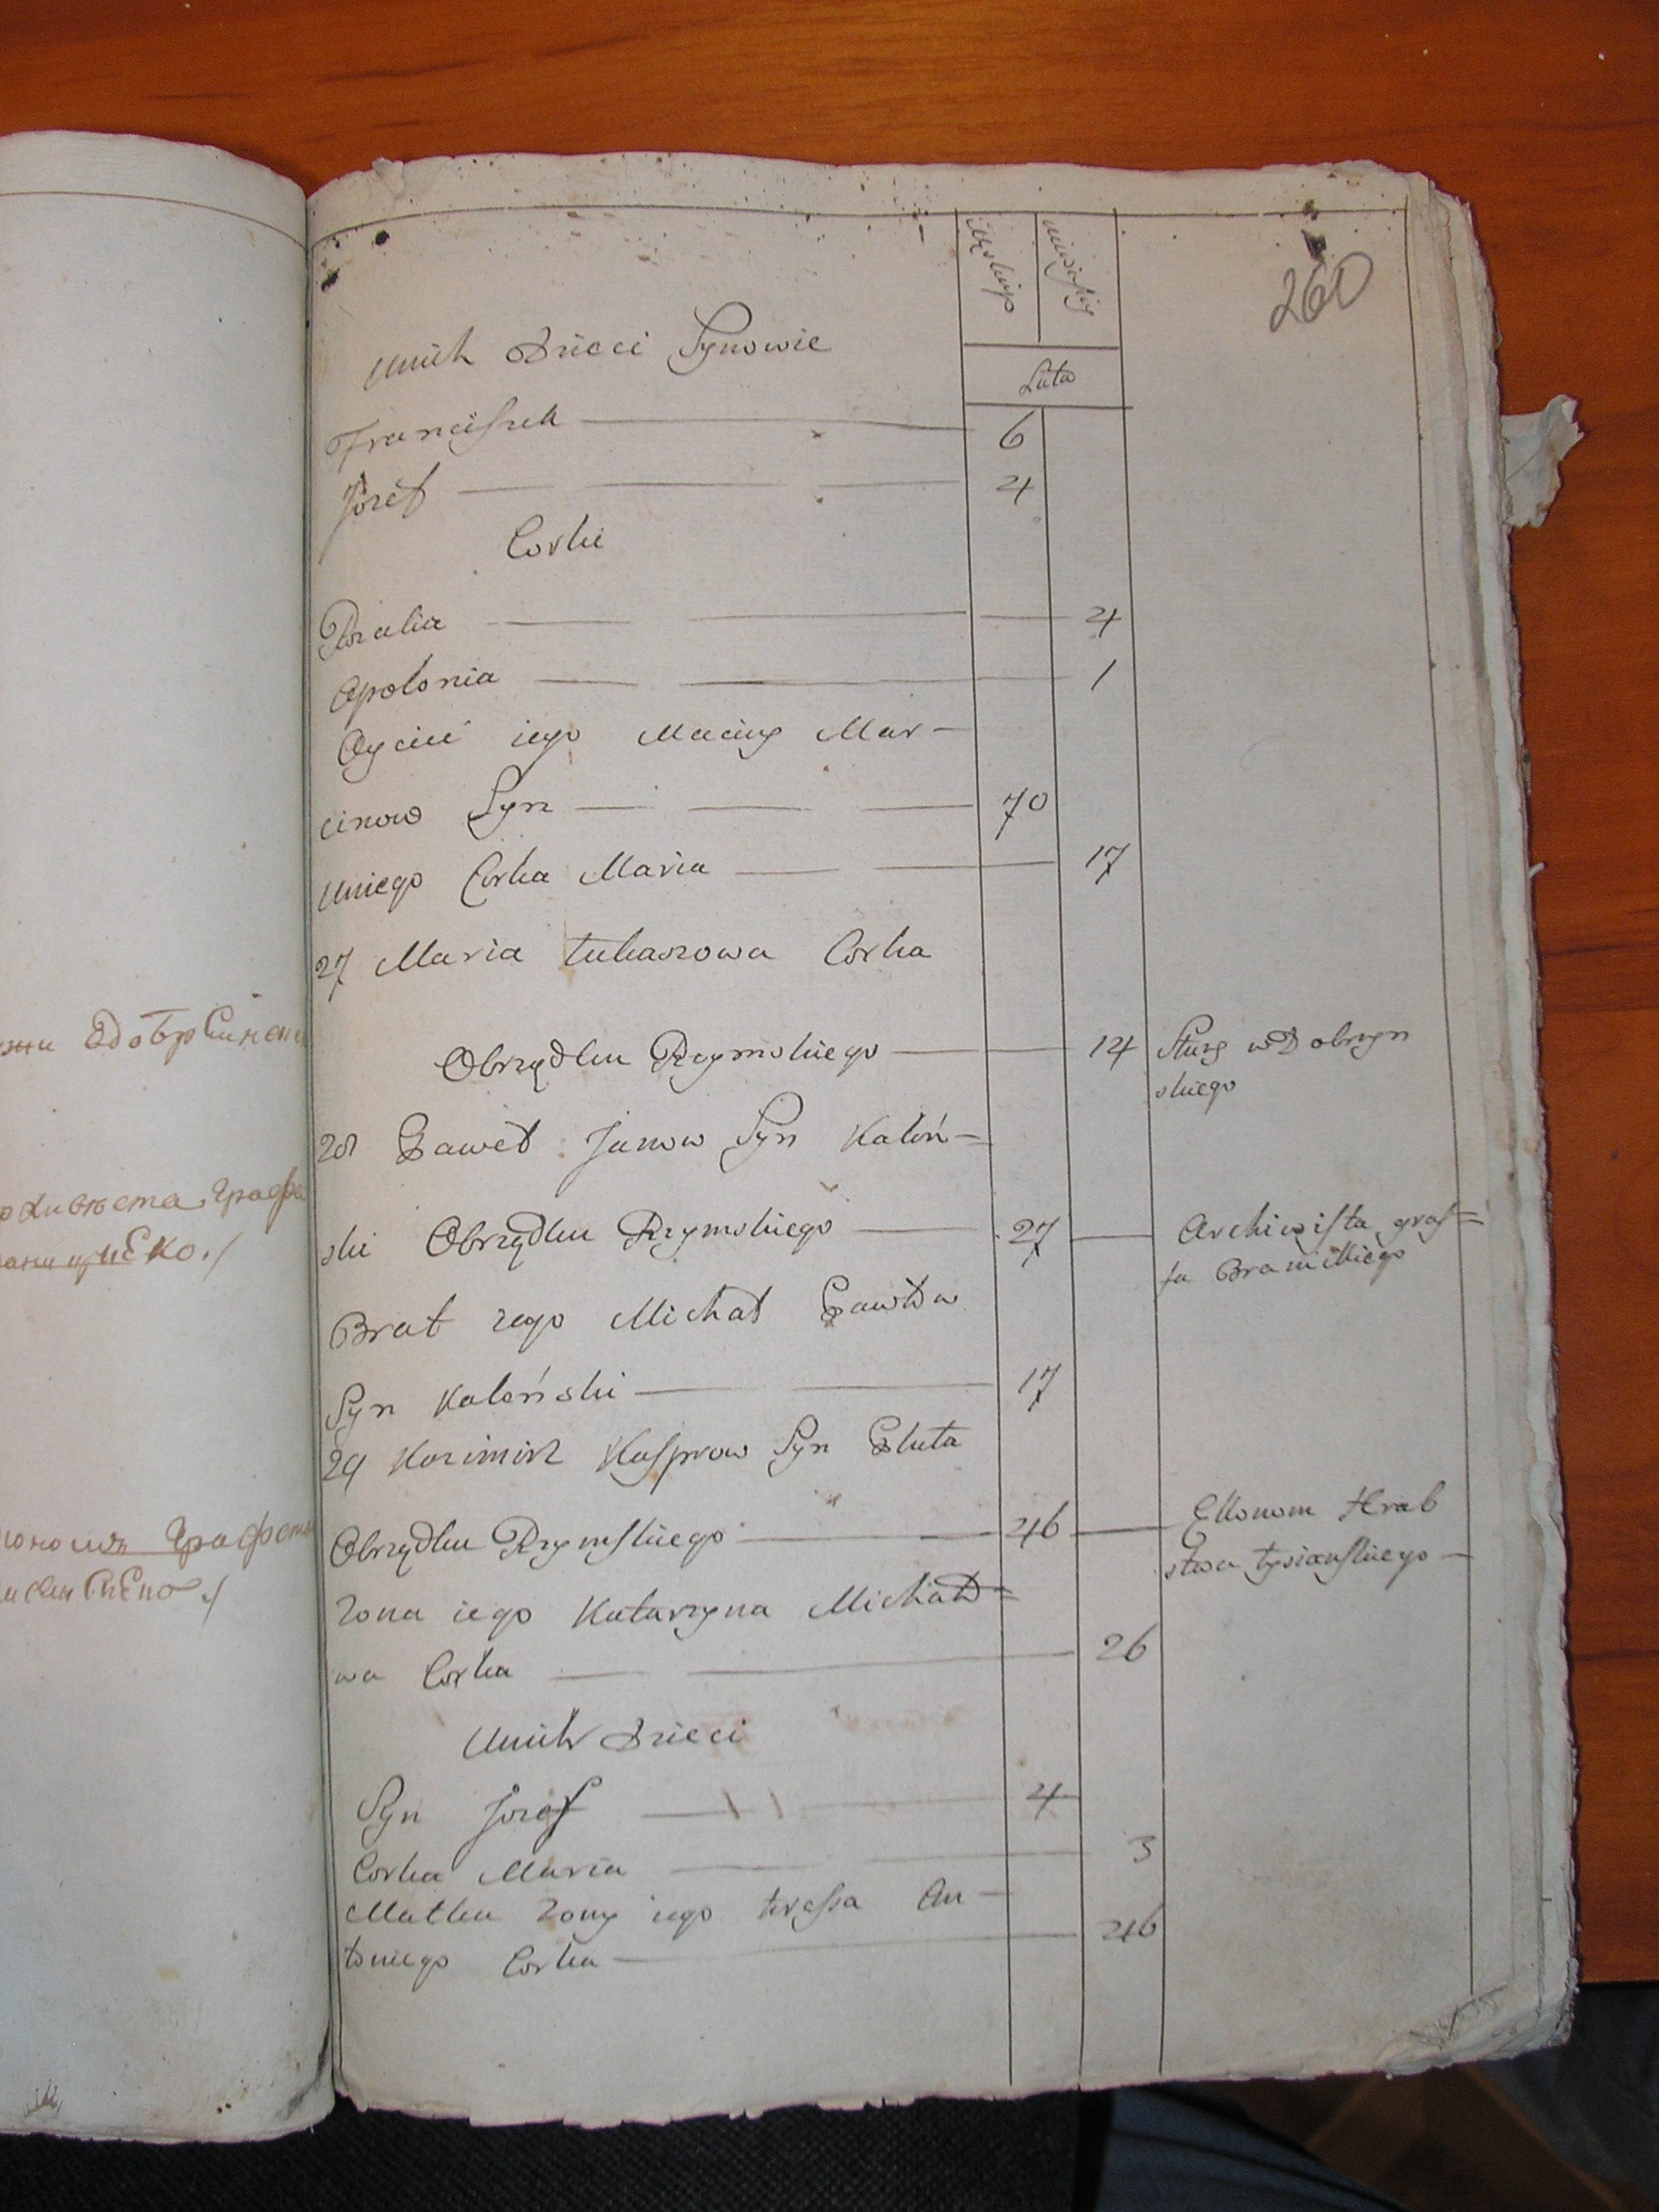 260
Unich Dzieci Synowie
Lata
Franciszek 6
Jozef 4
Corki
Rozalia 4
Apolonia 1
Oyciec iego Maciey Mar-
cinow Syn 70
Uniego Corka Maria 17
27 Maria Łukaszowa Corka
Obrządku Rzymskiego 14 Służy w Dobrzyn
skiego
28 Paweł Janow Syn Kałoń=
ski Obrządku Rzymskiego 27 Archiwista graf=
fa Branickiego
Brat iego Michał Pawłow
Syn Kałoński 17
29 Kazimirz Kasprow Syn Pluta
Obrządku Rzymskiego 46 Ekonom Hrab
stwa łysianskiego
Zona iego Katarzyna Michało=
wa Corka 26
Unich Dzieci
Syn Jozef 4
Corka Maria 3
Matka Zony iego teressa An-
toniego Corka 46